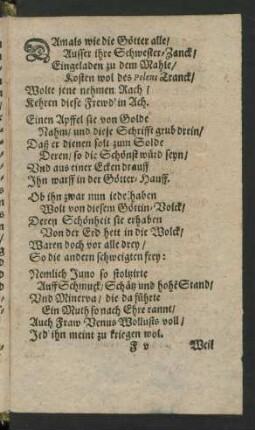 DAmals wie die Götter alle/
Ausser ihre Schwester-Zanck/
Eingeladen zu dem Mahle/
Kosten wol des Pelens Tranck/
Wolte jene nehmen Rach/
Kehren diese Frewd' in Ach.
Einen Apffel sie von Golde
Nahm/ und diese Schrifft grub drein/
Daß er dienen solt zum Solde
Deren/ so die Schönst würd seyn/
Vnd aus einer Ecken drauff
Ihn warff in der Götter-Hauff.
Ob ihn zwar nun iede haben
Wolt von diesem Göttin-Volck/
Deren Schönheit sie erhaben
Von der Erd hett in die Wolck/
Waren doch vor alle drey/
So die andern schweigten frey:
Nemlich Juno so stoltzirte
Auff Schmuck/ Schätz und hohe Stand/
Vnd Minerva/ die da führte
Ein Muth so nach Ehre rannt/
Auch Fraw Venus Wollusts voll/
Jed' ihn meint zu kriegen wol.
F v Weil